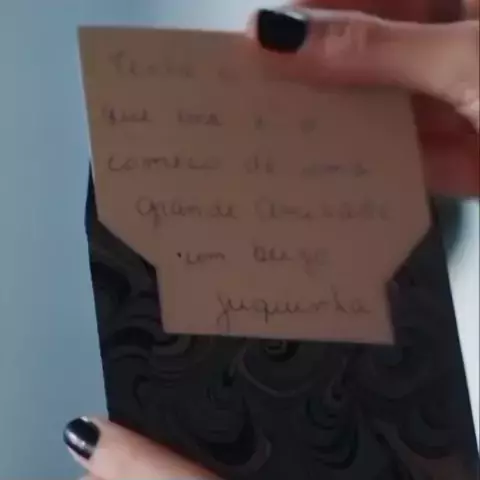 Tenho a
que essa é o
começo de uma
grande amizade
um beijo
Juquinha